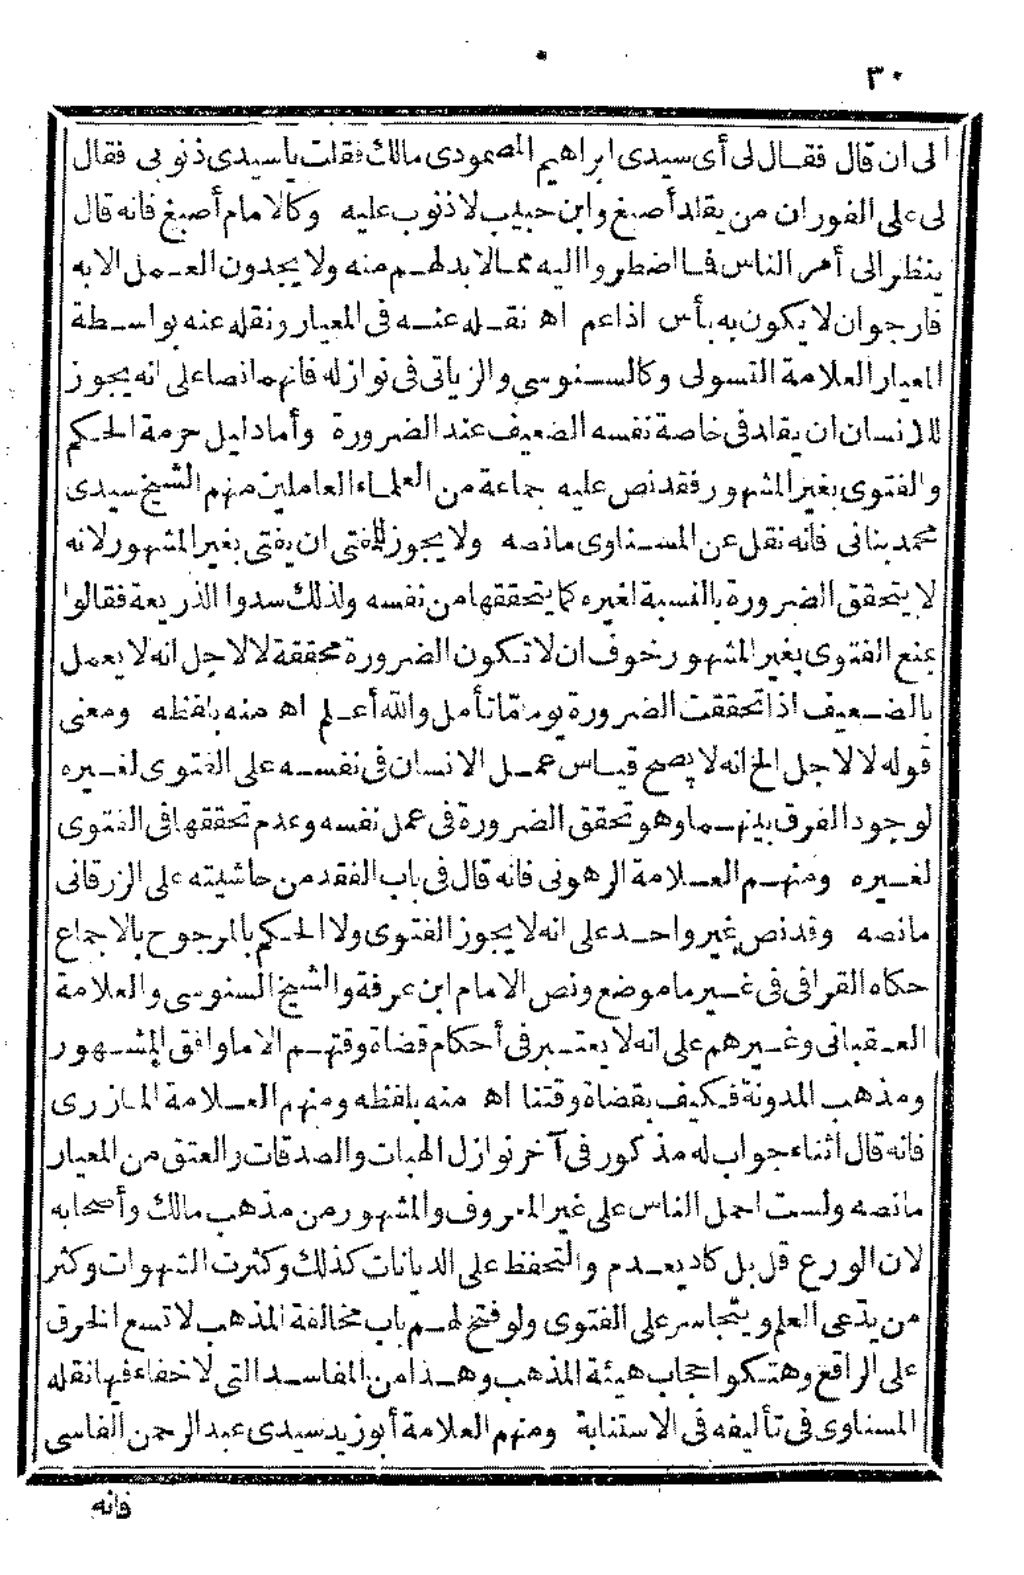 ٣٠
الى ان قال فقال لى أى سيدى ابراهيم المصمودى مالك فقلت ياسيدى ذنوبى فقال
لى على الفوران من يقلد أصبغ وابن حبيب لاذنوب عليه وكالامام أصبغ فانه قال
ينظر الى أمر الناس فما اضطروا اليه مما لابد لهم منه ولا يجدون العمل الابه
فارجوان لا يكون به بأس اذاعم اه نقله عنه فى المعيار ونقله عنه بواسطة
المعيار العلامة التسولى وكالسنوسى والزياتى فى نوازله فانهما نصا على انه يجوز
للانسان ان يقلد فى خاصة نفسه الضعيف عند الضرورة وأما دليل حرمة الحكم
والفتوى بغير المشهور فقد نص عليه جماعة من العلماء العاملين منهم الشيخ سيدى
محمد بنانى فانه نقل عن المسناوى مانصه ولا يجوز للمفتى ان يفتى بغير المشهور لانه
لا يتحقق الضرورة بالنسبة لغيره كما يتحققها من نفسه ولذلك سدوا الذريعة فقالوا
بمنع الفتوى بغير المشهور خوف ان لا تكون الضرورة محققة لا لاجل انه لا يعمل
بالضعيف اذا تحققت الضرورة يوما مّا تأمل والله أعلم اه منه بلفظه ومعنى
قوله لا لاجل الخ انه لا يصح قياس عمل الانسان فى نفسه على الفتوى لغيره
لوجود الفرق بينهما وهو تحقق الضرورة فى عمل نفسه وعدم تحققها فى الفتوى
لغيره ومنهم العلامة الرهونى فانه قال فى باب الفقد من حاشيته على الزرقانى
مانصه وقد نص غير واحد على انه لا يجوز الفتوى ولا الحكم بالمرجوح بالاجماع
حكاه القرافى فى غير ما موضع ونص الامام ابن عرفة والشيخ السنوسى والعلامة
العقبانى وغيرهم على انه لا يعتبر فى أحكام قضاة وقتهم الا ما وافق المشهور
ومذهب المدونة فكيف بقضاة وقتنا اه منه بلفظه ومنهم العلامة المازرى
فانه قال أثناء جواب له مذكور فى آخر نوازل الهبات والصدقات والعتق من المعيار
مانصه ولست احمل الناس على غير المعروف والمشهور من مذهب مالك وأصحابه
لان الورع قل بل كاد يعدم والتحفظ على الديانات كذلك وكثرت الشهوات وكثر
من يدّعى العلم ويتجاسر على الفتوى ولو فتح لهم باب مخالفة المذهب لا تسع الخرق
على الراقع وهتكوا حجاب هيئة المذهب وهذا من المفاسد التى لا خفاء فيها نقله
المسناوى فى تأليفه فى الاستنابة ومنهم العلامة أبوزيد سيدى عبدالرحمن الفاسى
فانه